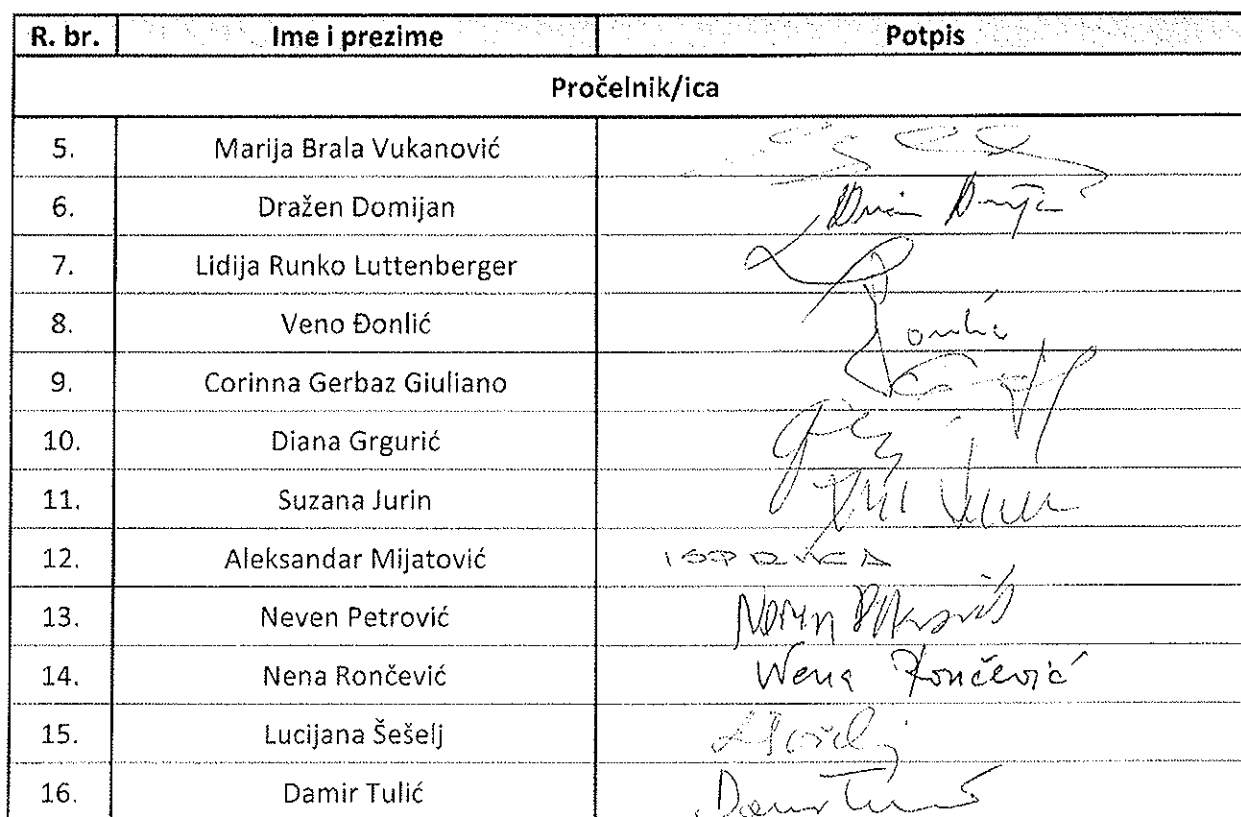 R. br. Ime i prezime Potpis
Pročelnik/ica
5. Marija Brala Vukanović
6. Dražen Domijan
7. Lidija Runko Luttenberger
8. Veno Đonlić
9. Corinna Gerbaz Giuliano
10. Diana Grgurić
11. Suzana Jurin
12. Aleksandar Mijatović
13. Neven Petrović Neven Petrović
14. Nena Rončević Nena Rončević
15. Lucijana Šešelj
16. Damir Tulić